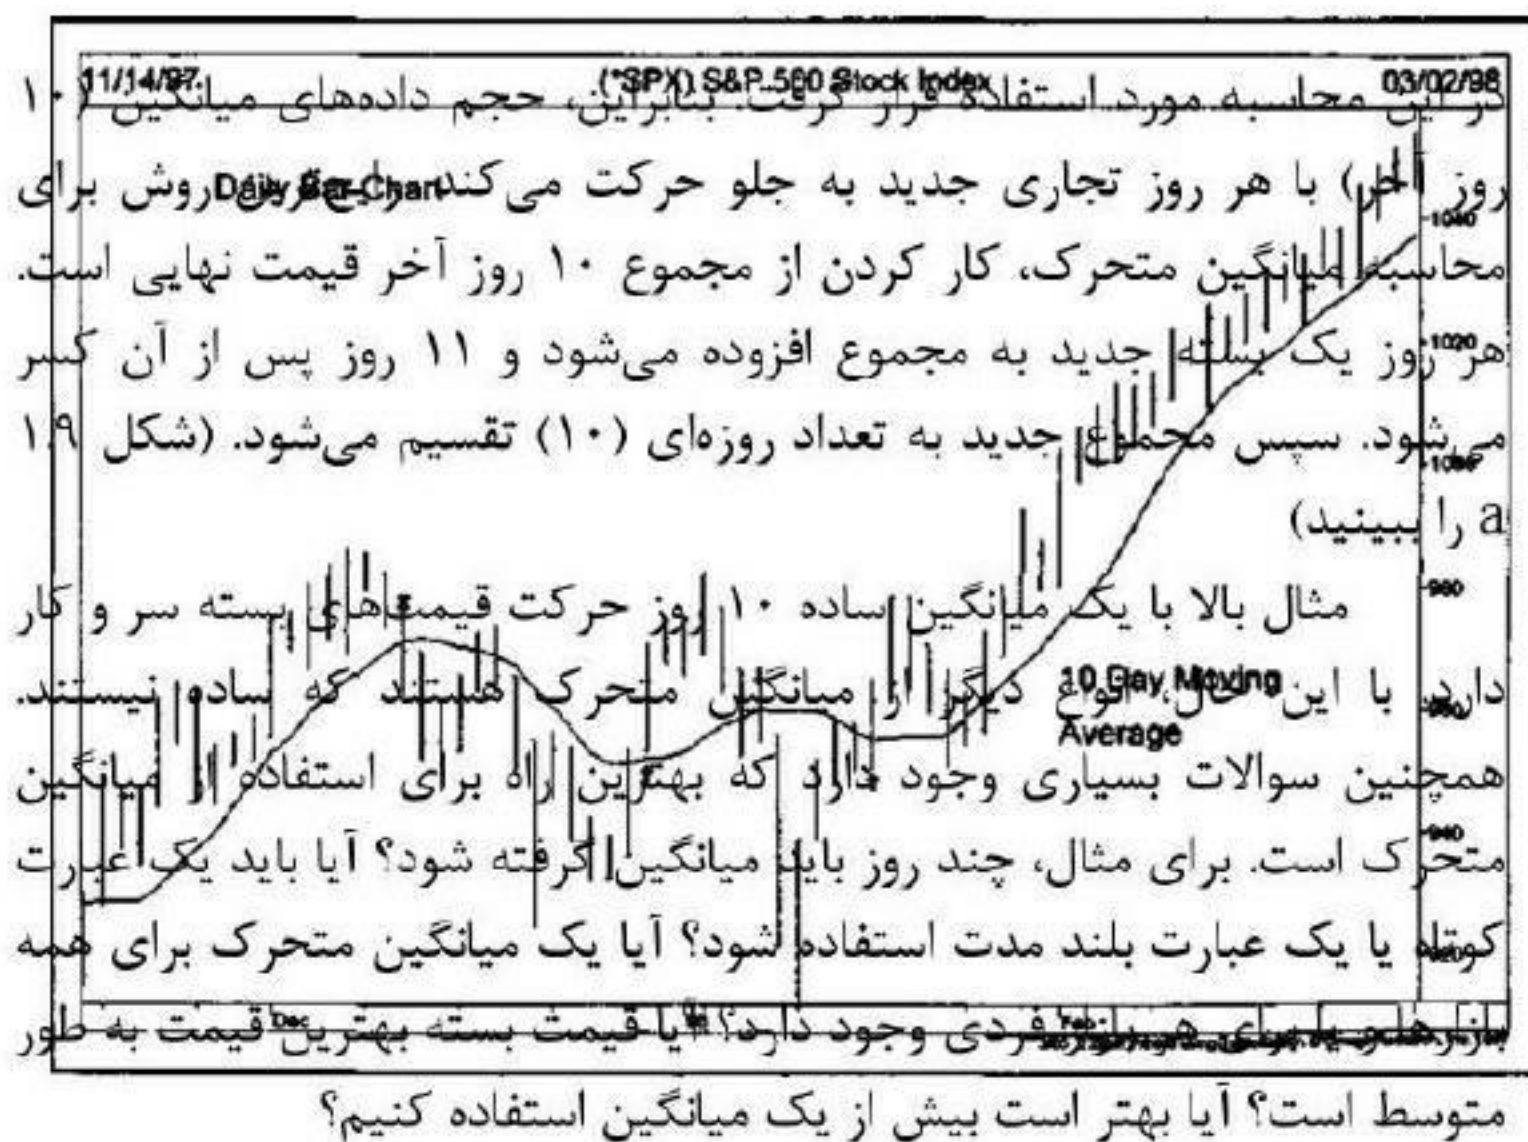 11/14/97 (*SPX) S&P 500 Stock Index 03/02/98
در این محاسبه مورد استفاده قرار گرفت. بنابراین، حجم داده‌های میانگین (۱۰
Daily Bar Chart
روز آخر) با هر روز تجاری جدید به جلو حرکت می‌کند. روش برای
1040
محاسبه میانگین متحرک، کار کردن از مجموع ۱۰ روز آخر قیمت نهایی است.
1020
هر روز یک بسته جدید به مجموع افزوده می‌شود و ۱۱ روز پس از آن کسر
می‌شود. سپس مجموع جدید به تعداد روزه‌ای (۱۰) تقسیم می‌شود. (شکل ۱.۹
a را ببینید)
980
مثال بالا با یک میانگین ساده ۱۰ روز حرکت قیمت‌های بسته سر و کار
10 Day Moving
دارد. با این حال، انواع دیگر از میانگین متحرک هستند که ساده نیستند.
Average
همچنین سوالات بسیاری وجود دارد که بهترین راه برای استفاده از میانگین
940
متحرک است. برای مثال، چند روز باید میانگین گرفته شود؟ آیا باید یک عبارت
کوتاه یا یک عبارت بلند مدت استفاده شود؟ آیا یک میانگین متحرک برای همه
920
Dec Feb
فردی وجود دارد؟ آیا قیمت بسته بهترین قیمت به طور
متوسط است؟ آیا بهتر است بیش از یک میانگین استفاده کنیم؟